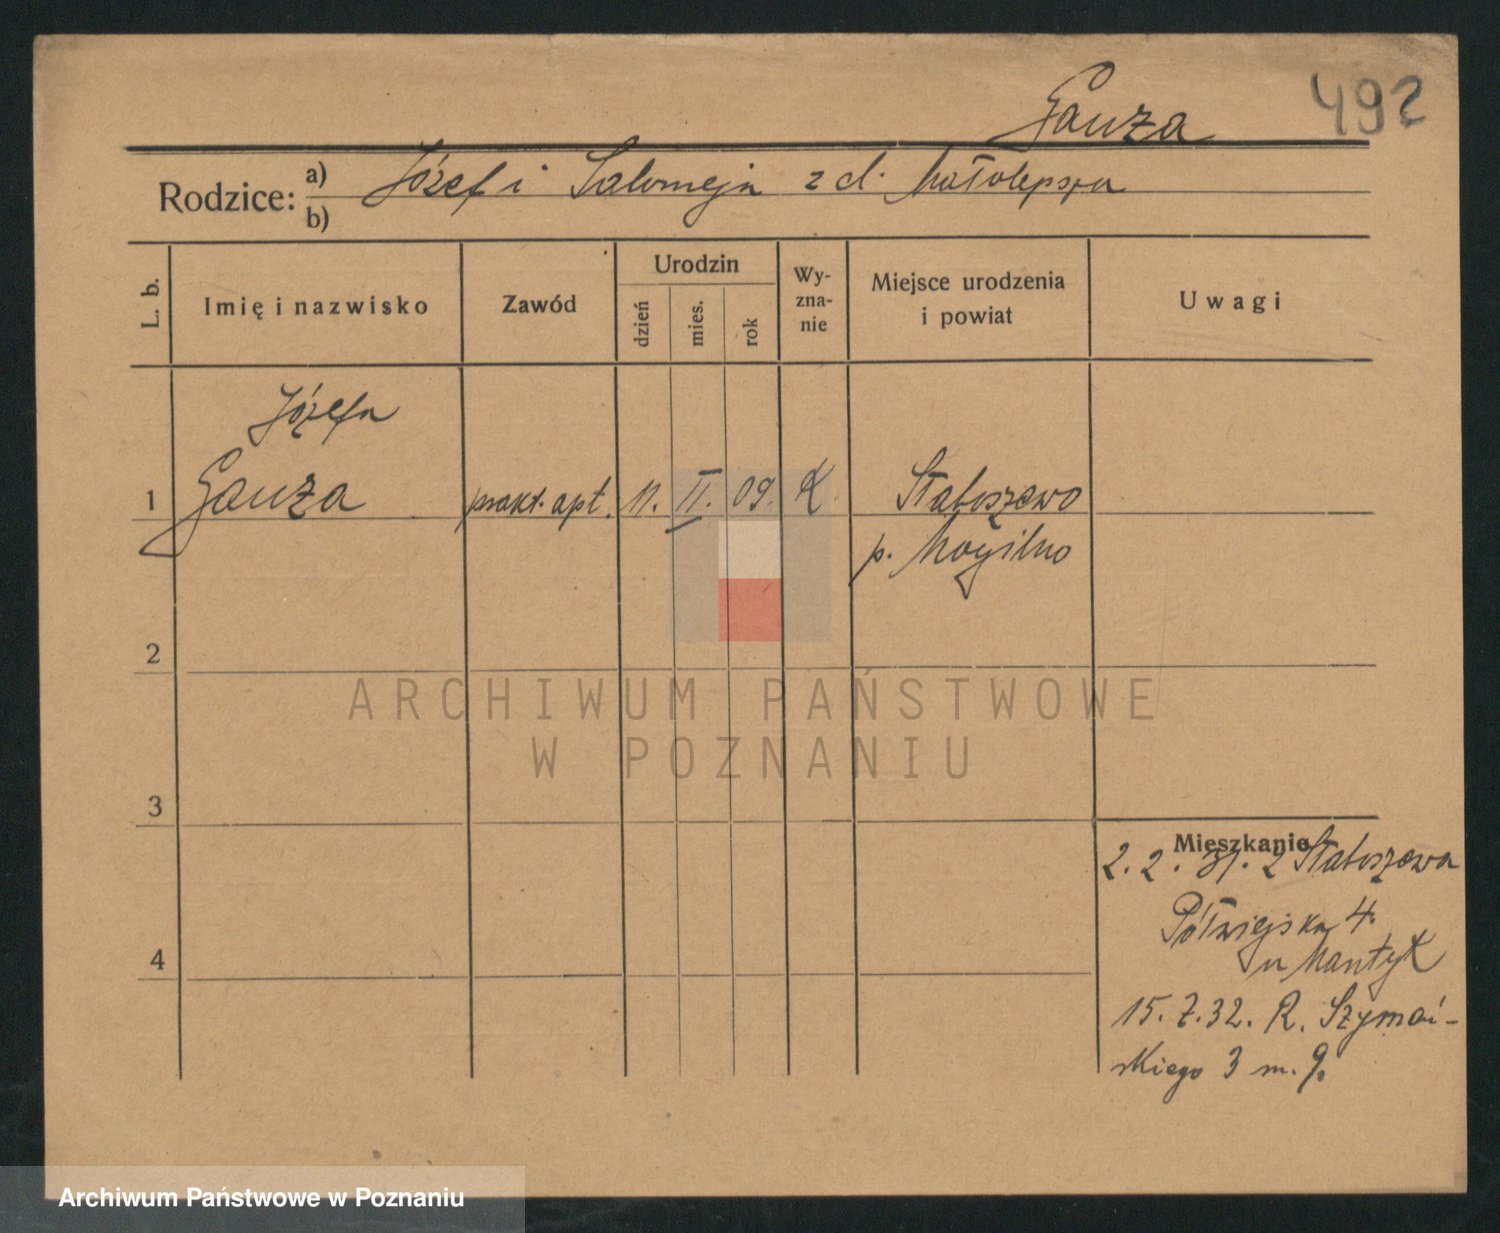 Gauza 492
Rodzice: a) Józef i Salomeja z d. Małolepsza
b)
L. b. Imię i nazwisko Zawód Urodzin dzień mies. rok Wy-zna-nie Miejsce urodzenia i powiat Uwagi
Józefa
1 Gauza prakt. apt. 11. II. 09. K Staboszewo
p. Mogilno
2
ARCHIWUM PAŃSTWOWE
W POZNANIU
3
Mieszkanie
2. 2. 31. z Staboszewa
4 Półwiejska 4.
u Mantyk
15. 7. 32. R. Szymań-
skiego 3 m. 9.
Archiwum Państwowe w Poznaniu